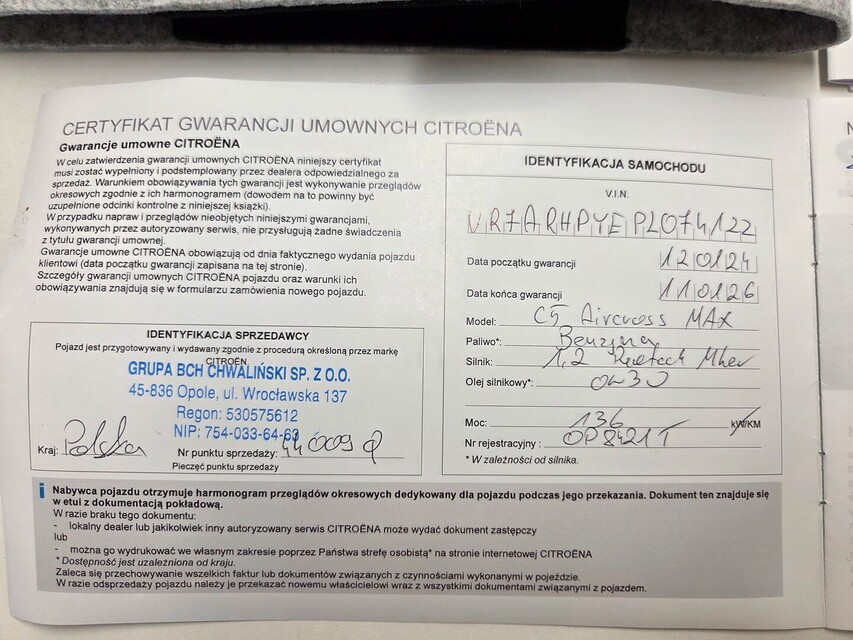 CERTYFIKAT GWARANCJI UMOWNYCH CITROËNA
Gwarancje umowne CITROËNA
W celu zatwierdzenia gwarancji umownych CITROËNA niniejszy certyfikat
musi zostać wypełniony i podstemplowany przez dealera odpowiedzialnego za
sprzedaż. Warunkiem obowiązywania tych gwarancji jest wykonywanie przeglądów
okresowych zgodnie z ich harmonogramem (dowodem na to powinny być
uzupełnione odcinki kontrolne z niniejszej książki).
W przypadku napraw i przeglądów nieobjętych niniejszymi gwarancjami,
wykonywanych przez autoryzowany serwis, nie przysługują żadne świadczenia
z tytułu gwarancji umownej.
Gwarancje umowne CITROËNA obowiązują od dnia faktycznego wydania pojazdu
klientowi (data początku gwarancji zapisana na tej stronie).
Szczegóły gwarancji umownych CITROËNA pojazdu oraz warunki ich
obowiązywania znajdują się w formularzu zamówienia nowego pojazdu.
IDENTYFIKACJA SPRZEDAWCY
Pojazd jest przygotowywany i wydawany zgodnie z procedurą określoną przez markę
CITROËN.
GRUPA BCH CHWALIŃSKI SP. Z O.O.
45-836 Opole, ul. Wrocławska 137
Regon: 530575612
NIP: 754-033-64-63
Kraj: Polska Nr punktu sprzedaży:
Pieczęć punktu sprzedaży
IDENTYFIKACJA SAMOCHODU
V.I.N.
VR7ARHPYEPL074122
Data początku gwarancji 120124
Data końca gwarancji 110126
Model: C5 Aircross MAX
Paliwo*: Benzyna
Silnik: 1,2 Puretech Mhev
Olej silnikowy*: 0w30
Moc: 136 kW/KM
Nr rejestracyjny : OP8421T
* W zależności od silnika.
i Nabywca pojazdu otrzymuje harmonogram przeglądów okresowych dedykowany dla pojazdu podczas jego przekazania. Dokument ten znajduje się
w etui z dokumentacją pokładową.
W razie braku tego dokumentu:
- lokalny dealer lub jakikolwiek inny autoryzowany serwis CITROËNA może wydać dokument zastępczy
lub
- można go wydrukować we własnym zakresie poprzez Państwa strefę osobistą* na stronie internetowej CITROËNA
* Dostępność jest uzależniona od kraju.
Zaleca się przechowywanie wszelkich faktur lub dokumentów związanych z czynnościami wykonanymi w pojeździe.
W razie odsprzedaży pojazdu należy je przekazać nowemu właścicielowi wraz z wszystkimi dokumentami związanymi z pojazdem.